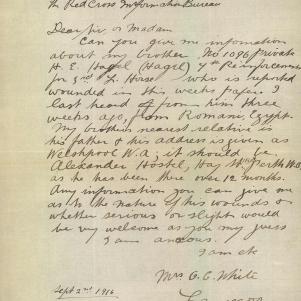 the Red Cross Information Bureau
Dear Sir or Madam
Can you give me information
about my brother, No 1096 Private
H. E. Hagel (Hagel) 7th Reinforcements
for 3rd L. Horse who is reported
wounded in this weeks paper. I
last heard of from him three
weeks ago, from Romani, Egypt.
My brothers nearest relative is
his father & his address is given as
Welshpool W.A; it should be
Alexander Hostel, Hay St Perth W.A,
as he has been there over 12 months.
Any information you can give me
as to the nature of his wounds or
whether serious or slight would
be very welcome as you may guess
I am anxious.
I am etc
Mrs G. C. White
Sept 2nd 1916